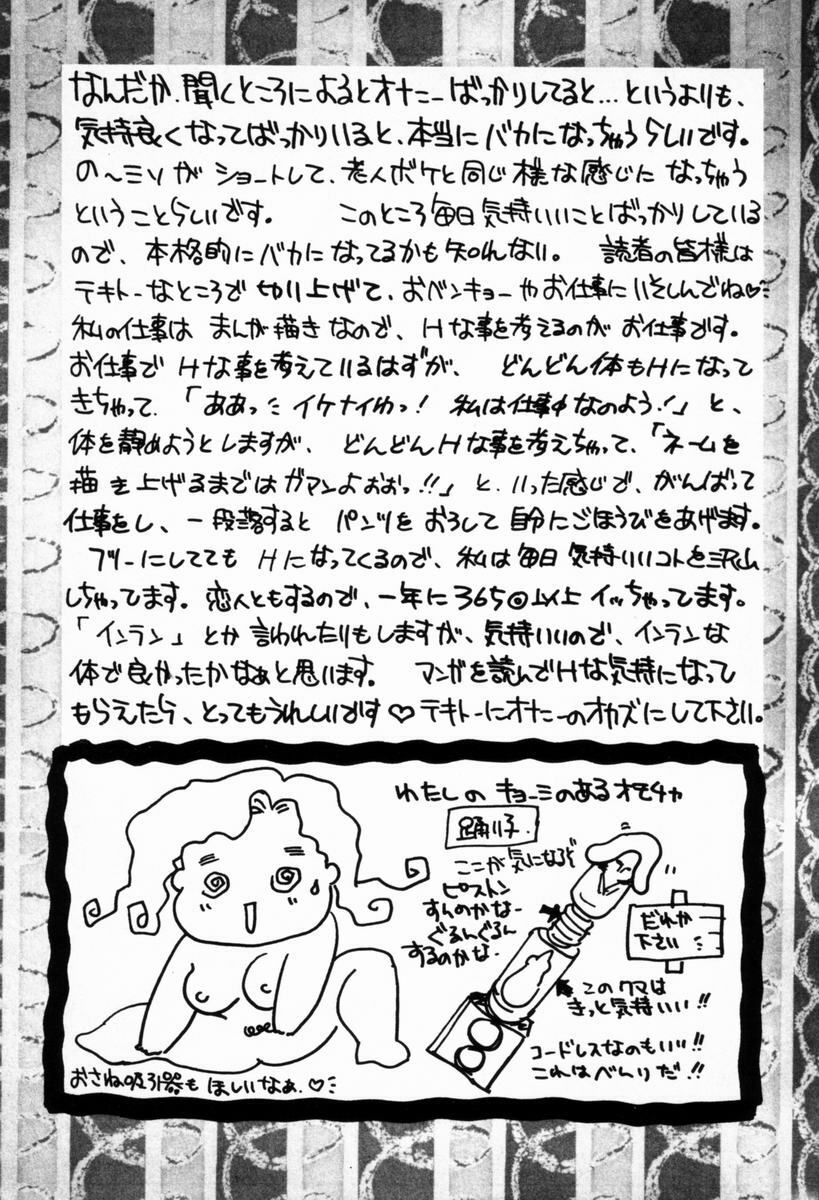 なんだか、聞くところによるとオナニーばっかりしてると…というよりも、
気持良くなってばっかりいると、本当にバカになっちゃうらしいです。
の〜ミソがショートして、老人ボケと同じ様な感じになっちゃう
ということらしいです。　このところ毎日気持いいことばっかりしている
ので、本格的にバカになってるかも知れない。　読者の皆様は
テキトーなところで切り上げて、おベンキョーやお仕事にいそしんでね♡
私の仕事はまんが描きなので、Hな事を考えるのがお仕事です。
お仕事でHな事を考えているはずが、どんどん体もHになって
きちゃって、「ああっこイケナイわっ！私は仕事中なのよう！」と、
体を静めようとしますが、どんどんHな事を考えちゃって、「ネームを
描き上げるまではガマンよおおっ!!」と、いった感じで、がんばって
仕事をし、一段落するとパンツをおろして自分にごほうびをあげます。
フツーにしててもHになってくるので、私は毎日気持いいコトを沢山
しちゃってます。恋人ともするので、一年に365回以上イッちゃってます。
「インラン」とか言われたりもしますが、気持いいので、インランな
体で良かったかなぁと思います。　マンガを読んでHな気持になって
もらえたら、とってもうれしいです♡テキトーにオナニーのオカズにして下さい。
わたしのキョーミのあるオモチャ
踊り子
ここが気になるぞ
ピストン
すんのかなー
ぐるんぐるん
するのかな
だれか
下さい
このクマは
きっと気持いい!!
コードレスなのもいい!!
これはべんりだ!!
おさね吸引器もほしいなぁ。♡